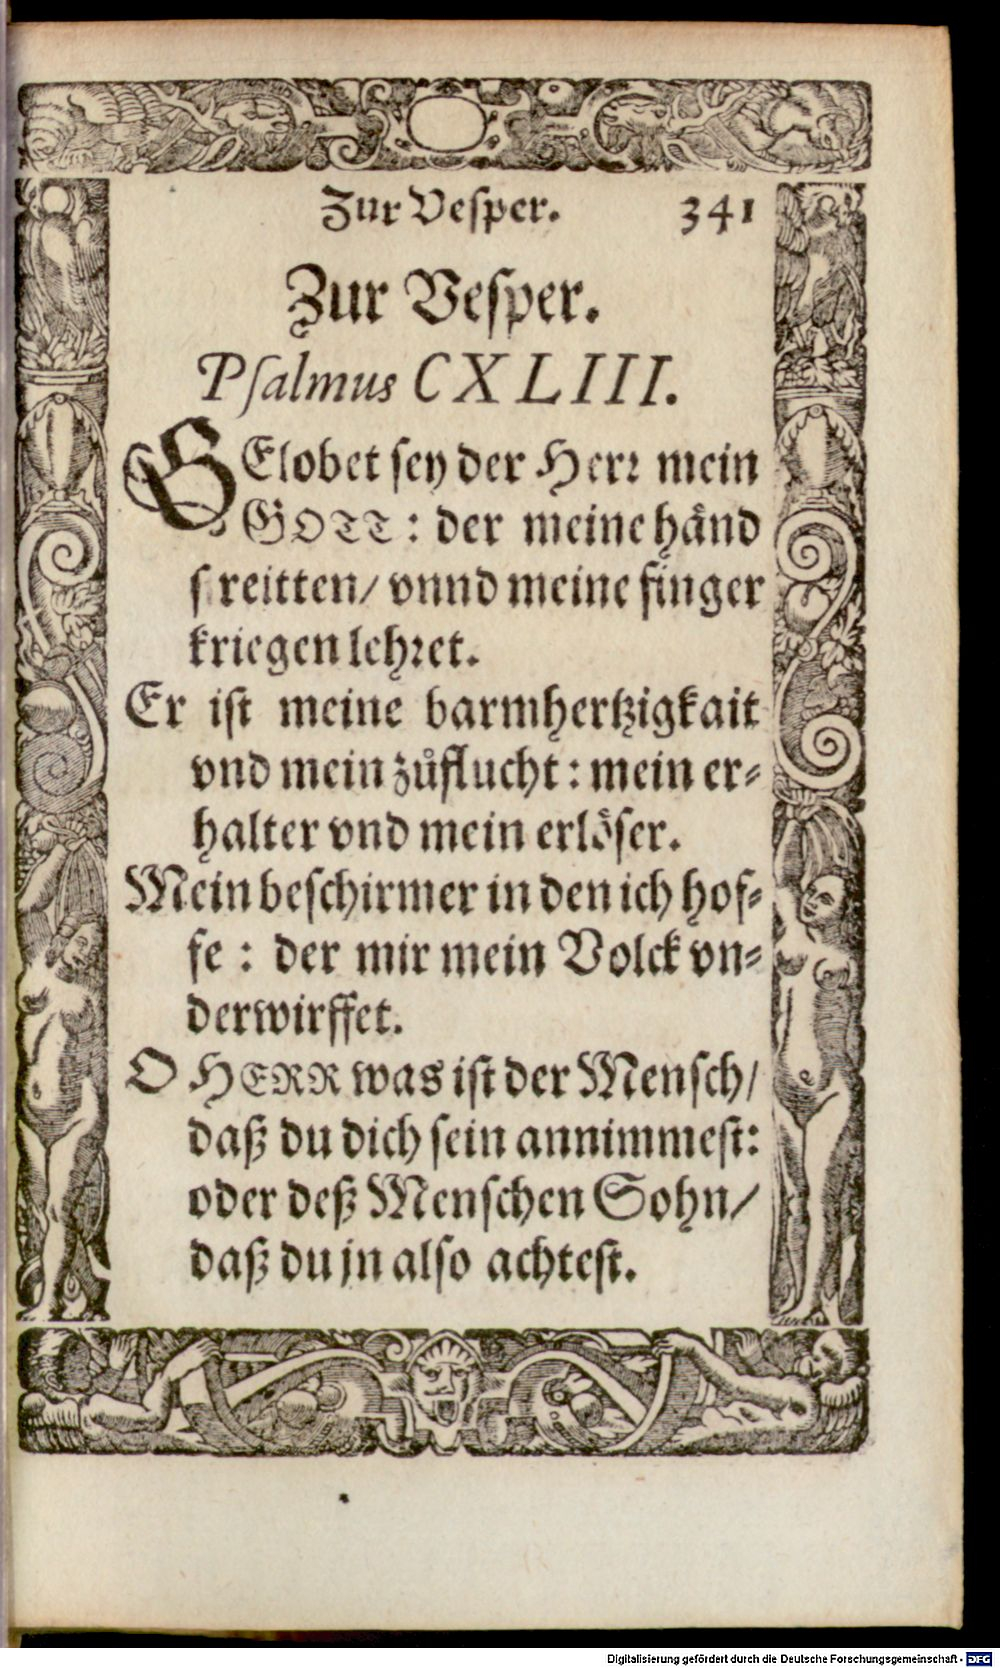 Zur Vesper. 341
Zur Vesper.
Psalmus CXLIII.
GElobet sey der Herr mein
GOTT: der meine händ
streitten/ vnnd meine finger
kriegen lehret.
Er ist meine barmhertzigkait
vnd mein zůflucht: mein er-
halter vnd mein erlöser.
Mein beschirmer in den ich hof-
fe: der mir mein Volck vn-
derwirffet.
O HERR was ist der Mensch/
daß du dich sein annimmest:
oder deß Menschen Sohn/
daß du jn also achtest.
Digitalisierung gefördert durch die Deutsche Forschungsgemeinschaft - DFG